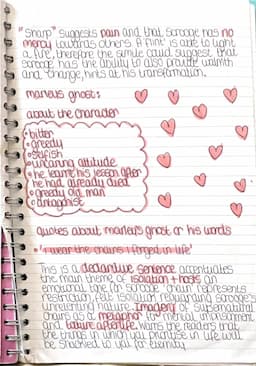 "Sharp" suggests pain and that Scrooge has no
mercy towards others. A flint is able to light
a fire, therefore the simile could suggest that
Scrooge has the ability to also provide warmth
and change, hints at his transformation.
Marley's ghost:
about the character
• bitter
• greedy
• selfish
• uncaring attitude
• he learnt his lesson after
he had already died
• greedy old man
• antagonist
quotes about marley's ghost or his words
• "I wear the chains I forged in life"
This is a declarative sentence accentuates
the main theme of isolation + hosts an
emotional tone for Scrooge. "Chain" represents
restriction, felt isolation Scrooge's
threatening nature. Imagery of supernatural
chains as a metaphor of mental imprisonment
and torture afterlife. Warns the readers that
the things in which you prioritise in life will
be shackled to you for eternity.